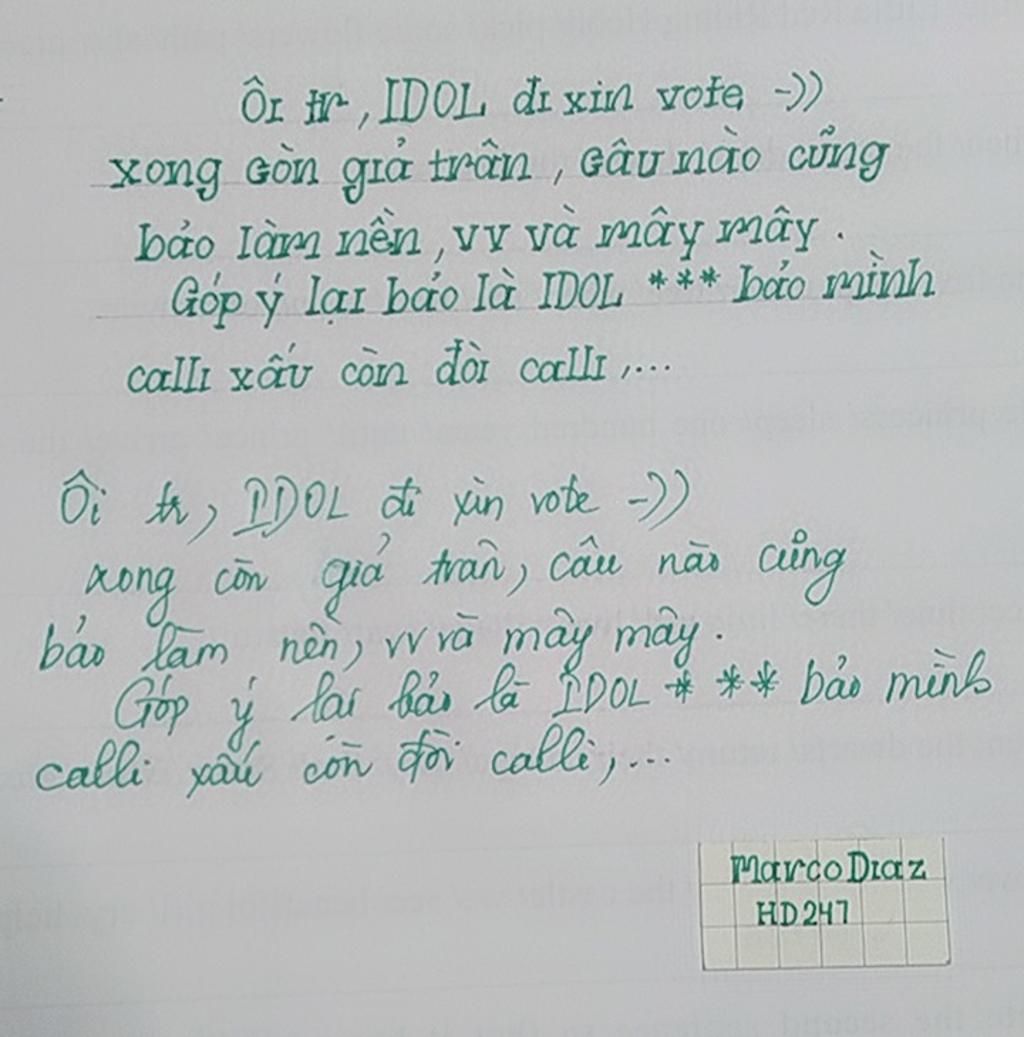 Ôi tr, IDOL đi xin vote -))
xong còn giả trân, câu nào cũng
bảo làm nền, vv và mây mây.
Góp ý lại bảo là IDOL *** bảo mình
calli xấu còn đòi calli,...
Ôi tr, IDOL đi xin vote -))
xong còn giả trân, câu nào cũng
bảo làm nền, vv và mây mây.
Góp ý lại bảo là IDOL *** bảo mình
calli xấu còn đòi calli,...
Marco Diaz
HD247